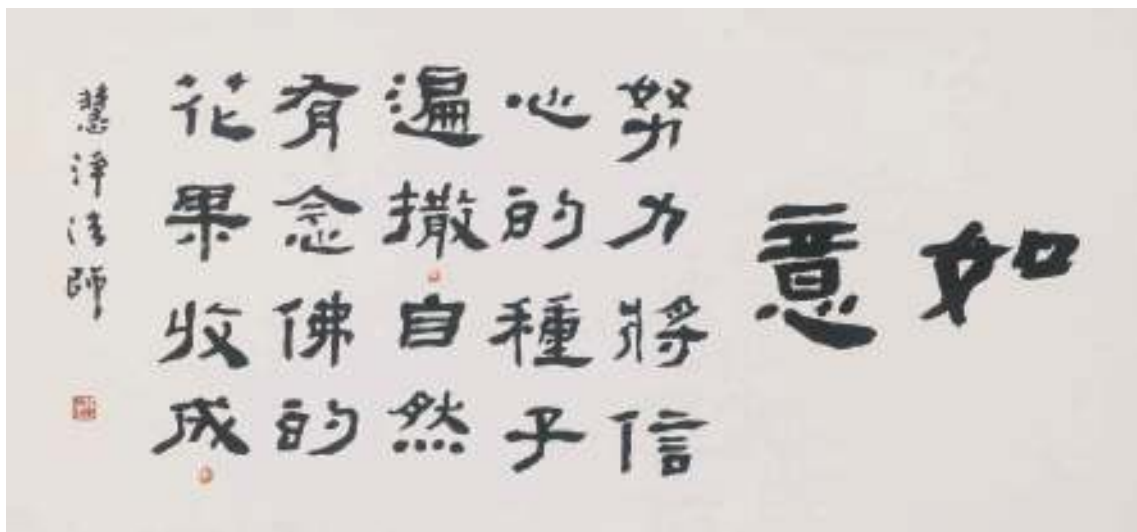 如意
努力將信
心的種子
遍撒自然
有念佛的
花果收成
慧淨法師